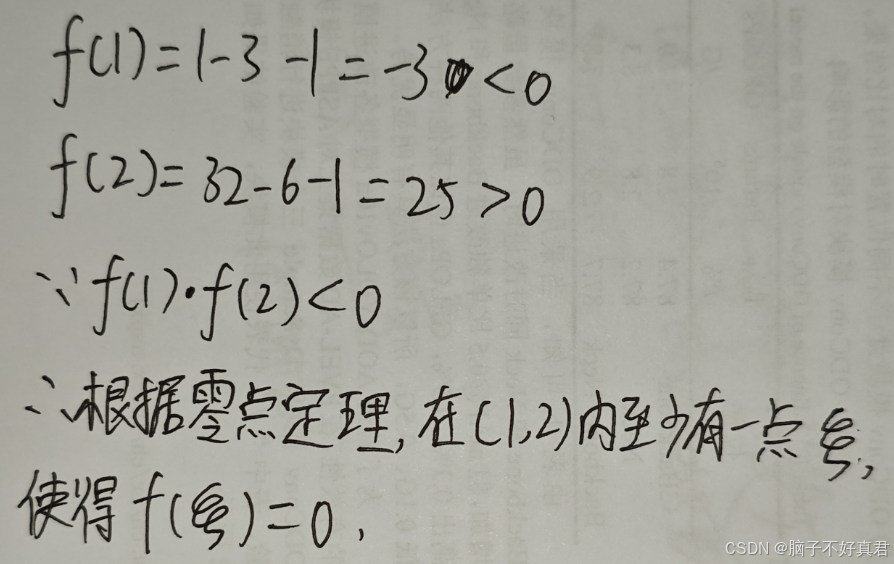 f(1)=1-3-1=-3<0
f(2)=32-6-1=25>0
∵f(1)·f(2)<0
∴根据零点定理,在(1,2)内至少有一点ξ,
使得f(ξ)=0,
CSDN @脑子不好真君